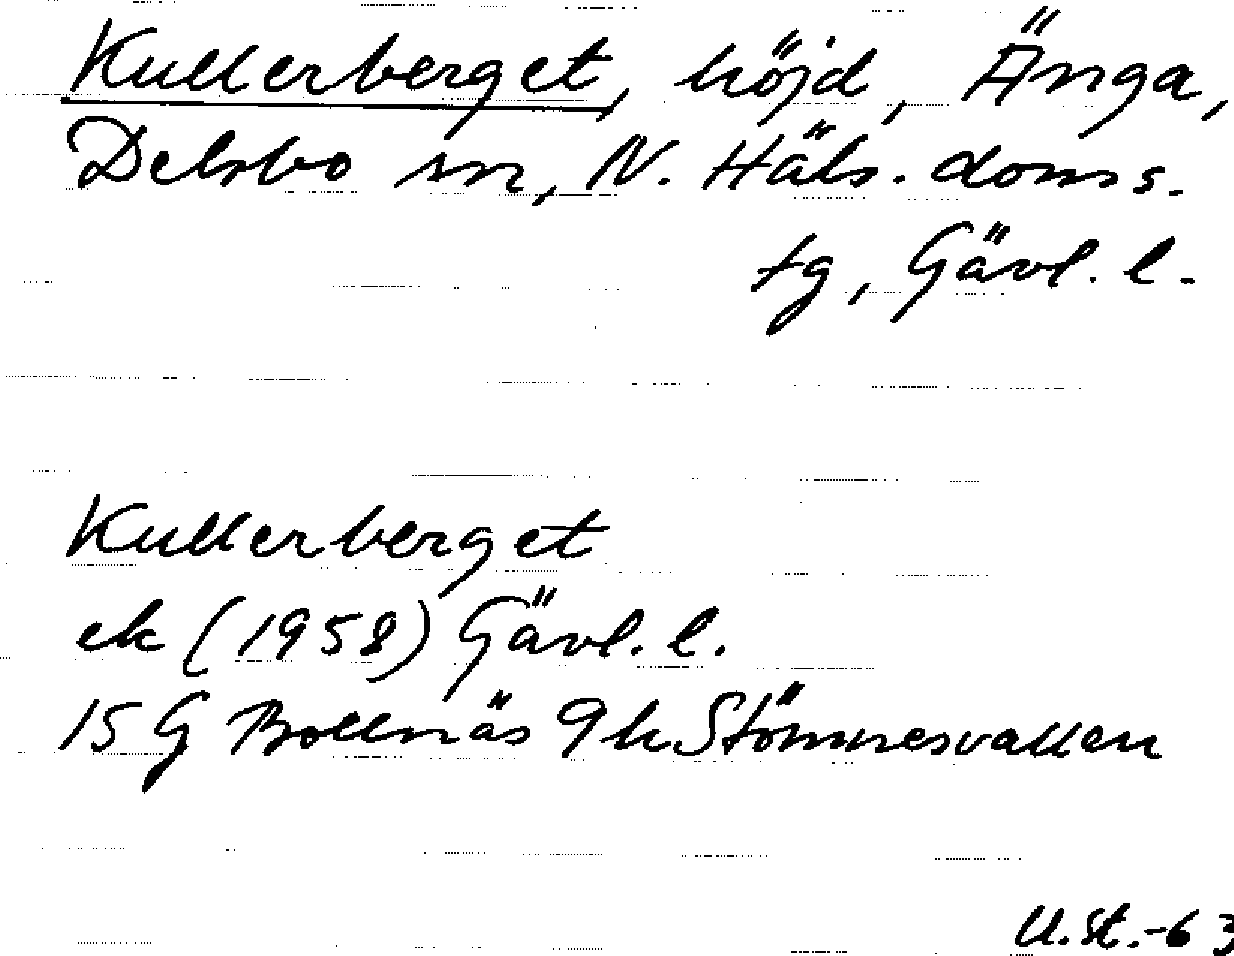 Kullerberget, höjd, Änga,
Delsbo sn, N. Häls. doms.
tg, Gävl. l.
Kullerberget
ek (1958) Gävl. l.
15 G Bollnäs 9h Stömnesvallen
U.St.-63